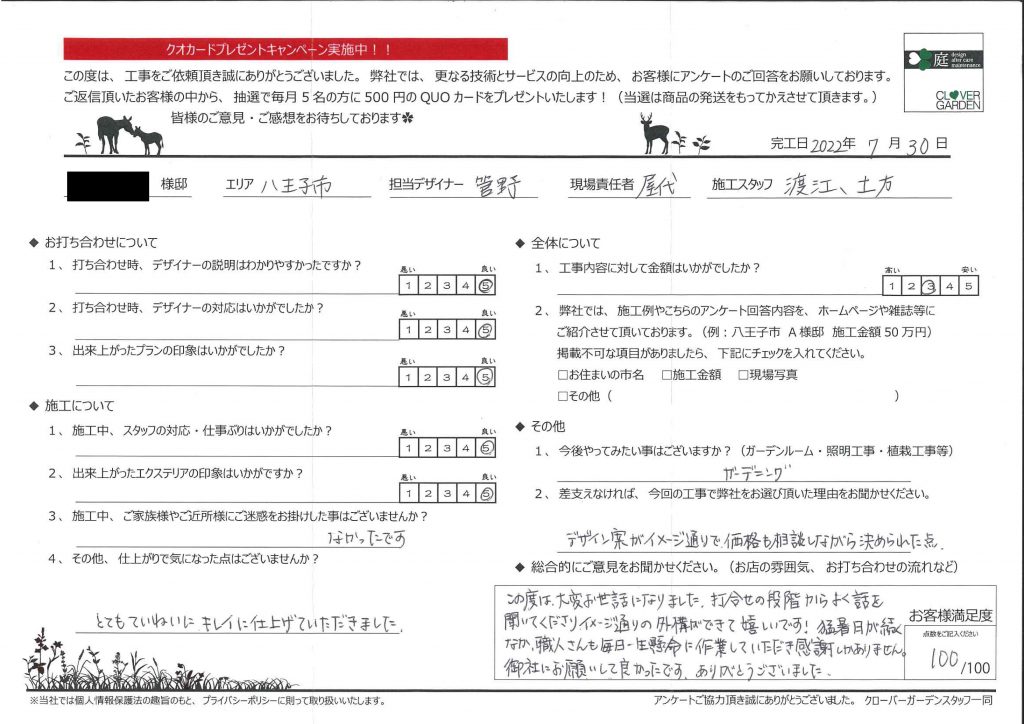 クオカードプレゼントキャンペーン実施中！！
この度は、工事をご依頼頂き誠にありがとうございました。弊社では、更なる技術とサービスの向上のため、お客様にアンケートのご回答をお願いしております。
ご返信頂いたお客様の中から、抽選で毎月5名の方に500円のQUOカードをプレゼントいたします！（当選は商品の発送をもってかえさせて頂きます。）
皆様のご意見・ご感想をお待ちしております
庭 design after care maintenance
CLOVER GARDEN
完工日 2022年 7月 30日
様邸 エリア 八王子市 担当デザイナー 管野 現場責任者 屋代 施工スタッフ 渡江、土方
◆ お打ち合わせについて
1、打ち合わせ時、デザイナーの説明はわかりやすかったですか？
悪い 良い
1 2 3 4 5
2、打ち合わせ時、デザイナーの対応はいかがでしたか？
悪い 良い
1 2 3 4 5
3、出来上がったプランの印象はいかがでしたか？
悪い 良い
1 2 3 4 5
◆ 施工について
1、施工中、スタッフの対応・仕事ぶりはいかがでしたか？
悪い 良い
1 2 3 4 5
2、出来上がったエクステリアの印象はいかがですか？
悪い 良い
1 2 3 4 5
3、施工中、ご家族様やご近所様にご迷惑をお掛けした事はございませんか？
なかったです
4、その他、仕上がりで気になった点はございませんか？
とてもていねいに キレイに仕上げていただきました。
◆ 全体について
1、工事内容に対して金額はいかがでしたか？
高い 安い
1 2 3 4 5
2、弊社では、施工例やこちらのアンケート回答内容を、ホームページや雑誌等に
ご紹介させて頂いております。（例：八王子市 A様邸 施工金額50万円）
掲載不可な項目がありましたら、下記にチェックを入れてください。
□お住まいの市名 □施工金額 □現場写真
□その他（ ）
◆ その他
1、今後やってみたい事はございますか？（ガーデンルーム・照明工事・植栽工事等）
ガーデニング
2、差支えなければ、今回の工事で弊社をお選び頂いた理由をお聞かせください。
デザイン案がイメージ通りで、価格も相談しながら決められた点。
◆ 総合的にご意見をお聞かせください。（お店の雰囲気、お打ち合わせの流れなど）
この度は、大変お世話になりました。打合せの段階からよく話を
聞いてくださりイメージ通りの外構ができて嬉しいです！猛暑日が続く
なか、職人さんも毎日一生懸命に作業していただき感謝しかありません。
御社にお願いして良かったです。ありがとうございました。
お客様満足度
点数をご記入ください
100/100
※当社では個人情報保護法の趣旨のもと、プライバシーポリシーに則って取り扱いいたします。
アンケートご協力頂き誠にありがとうございました。クローバーガーデンスタッフ一同